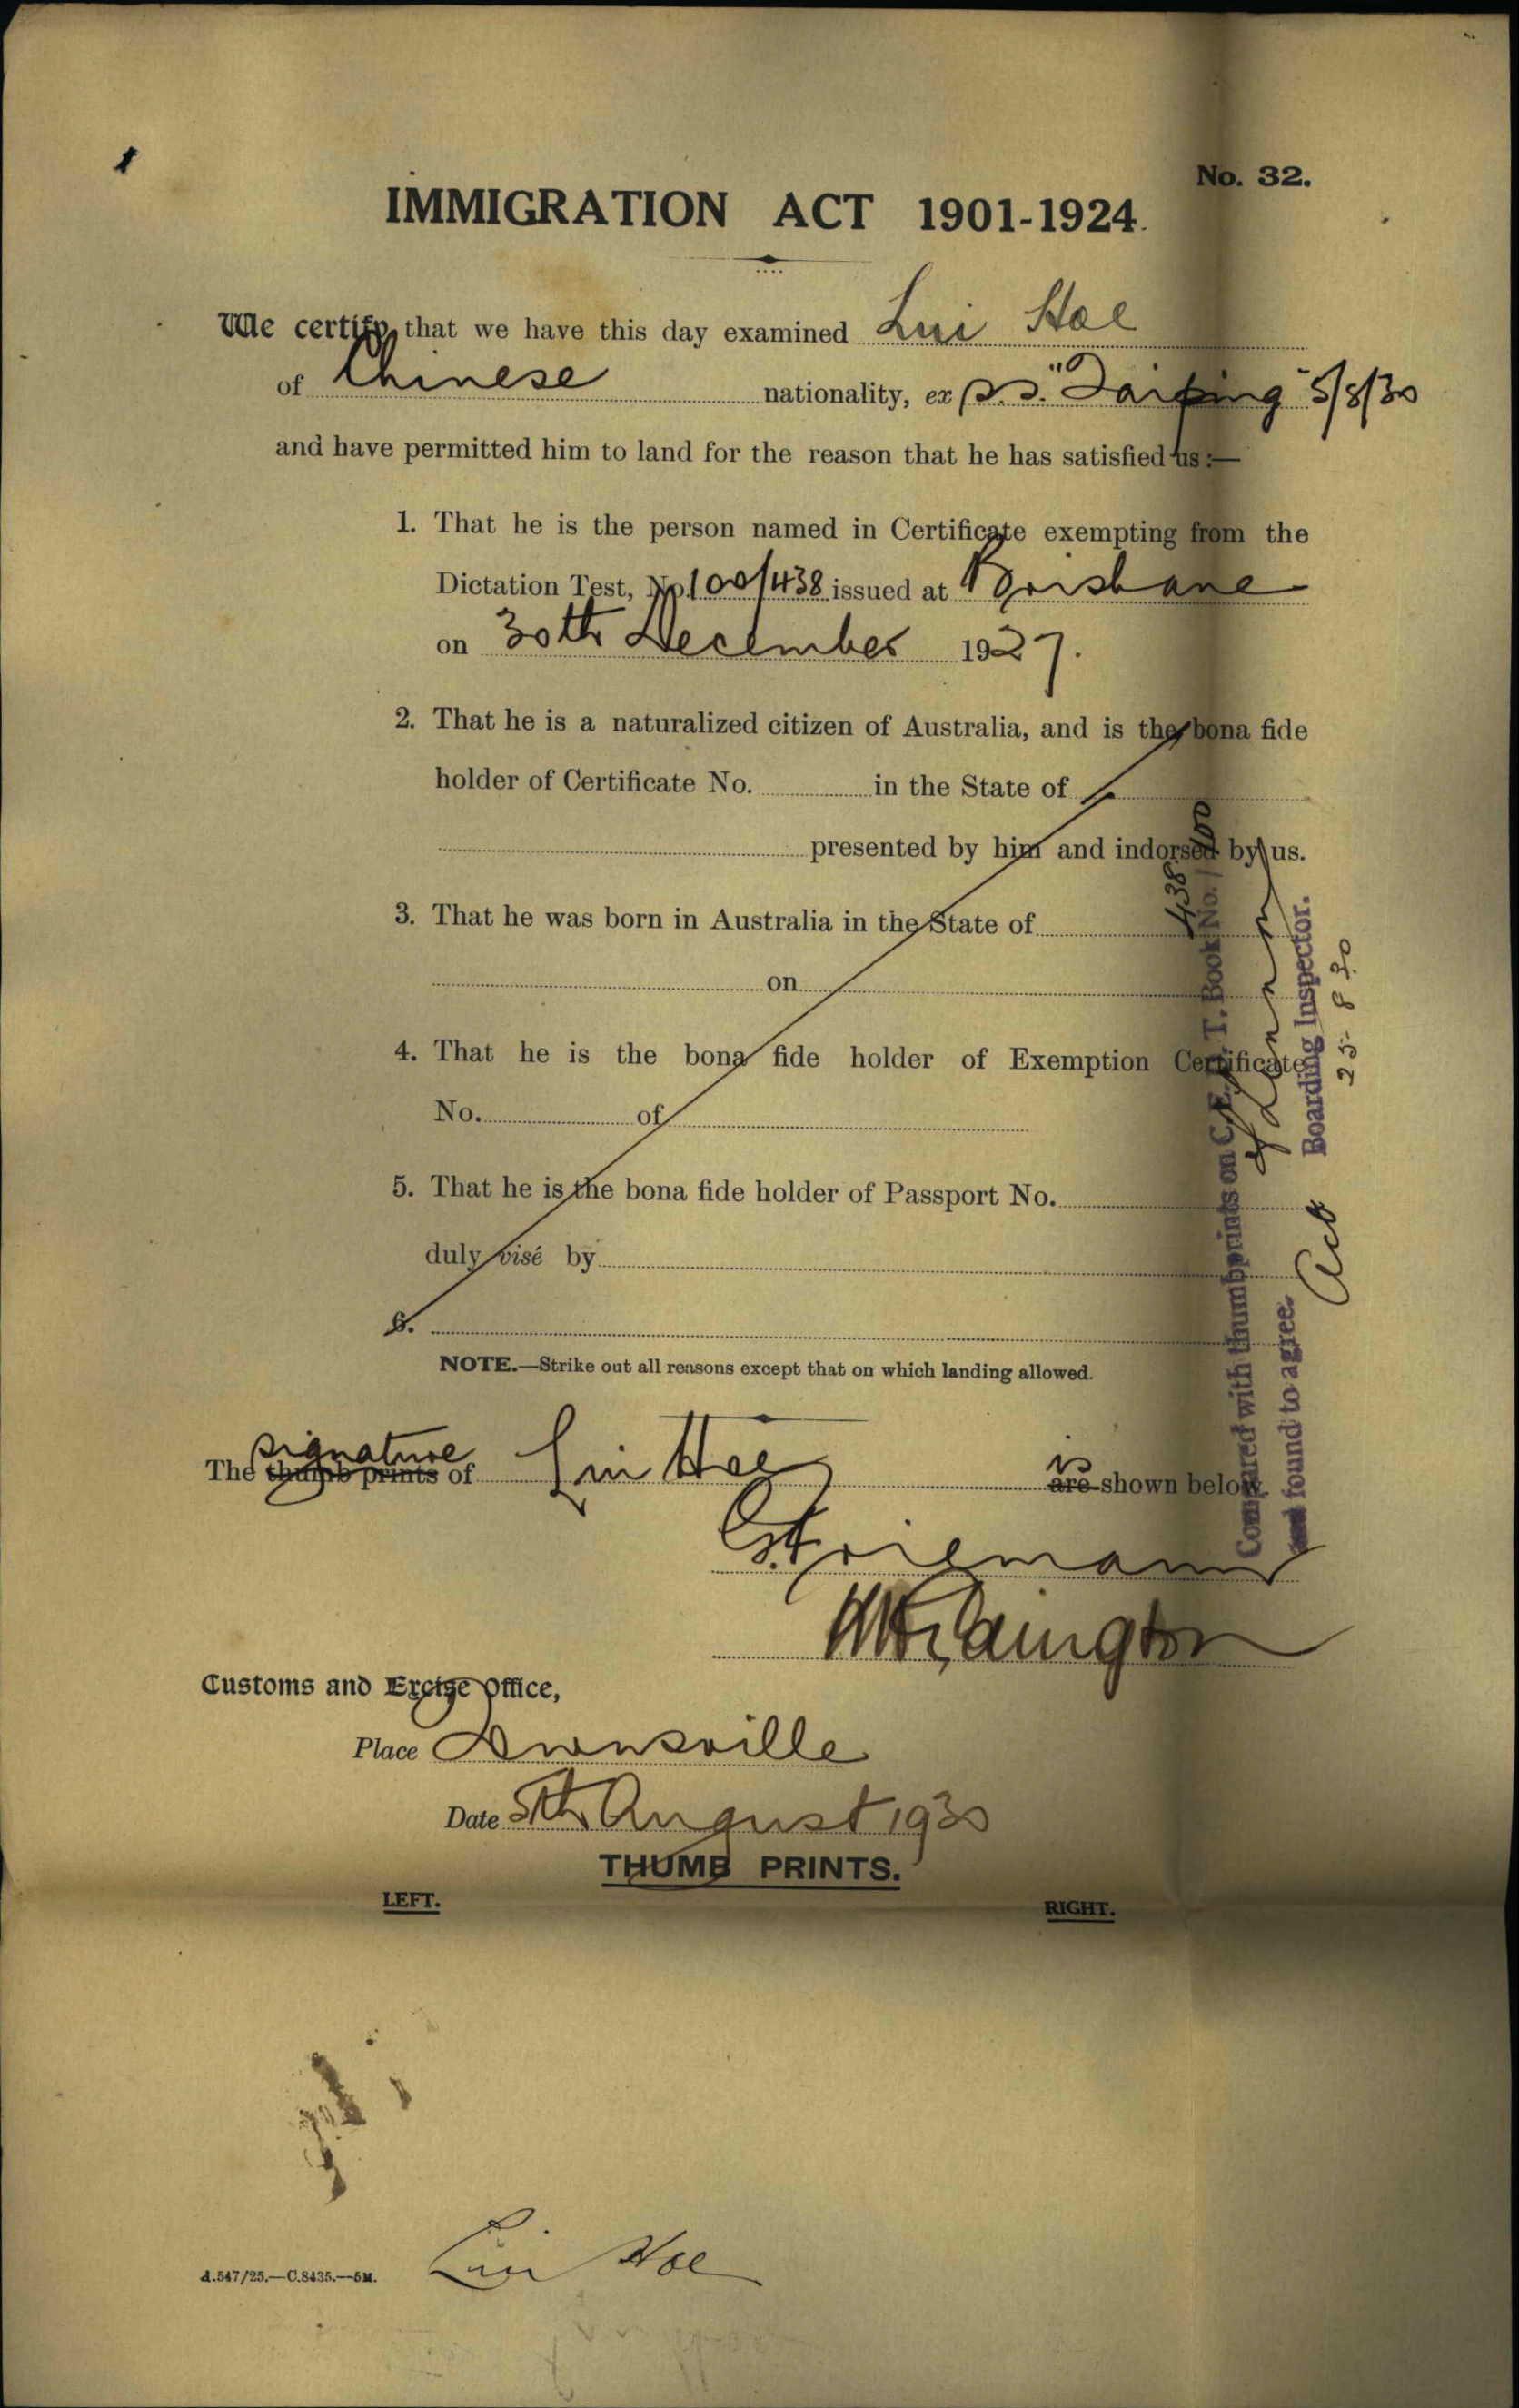 No. 32.
IMMIGRATION ACT 1901-1924.
We certify that we have this day examined Lui Hoe
of Chinese nationality, ex s.s. "Taiping" 5/8/30
and have permitted him to land for the reason that he has satisfied us:—
1. That he is the person named in Certificate exempting from the
Dictation Test, No. 100/438 issued at Brisbane
on 30th December 1927.
2. That he is a naturalized citizen of Australia, and is the bona fide
holder of Certificate No. in the State of
presented by him and indorsed by us.
3. That he was born in Australia in the State of
on
4. That he is the bona fide holder of Exemption Certificate
No. of
5. That he is the bona fide holder of Passport No.
duly visé by
6.
NOTE.—Strike out all reasons except that on which landing allowed.
The thumb prints signature of Lui Hoe are is shown below.
Customs and Excise Office,
Place Townsville
Date 5th August 1930
THUMB PRINTS.
LEFT. RIGHT.
Lui Hoe
A.547/25.—C.8435.—5M.
Compared with thumbprints on C.E.D.T. Book No. 438/100
and found to agree.
Boarding Inspector.
25 8 30